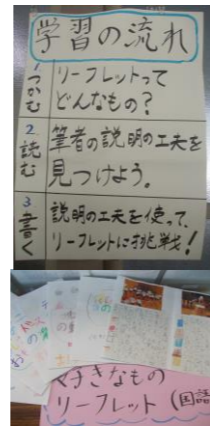 学習の流れ
1 つかむ
リーフレットって
どんなもの?
2 読む
筆者の説明の工夫を
見つけよう。
3 書く
説明の工夫を使って、
リーフレットに挑戦!
好きなもの
リーフレット(国語